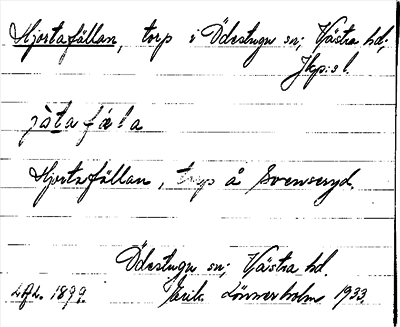 Hjortafällan, torp i Ödestugu sn; Västra hd,
Jkp:s l.
jòta fæla
Hjortafällan, torp å Svenseryd.
Ödestugu sn; Västra hd.
1899. Erik Lönnerholm 1933.